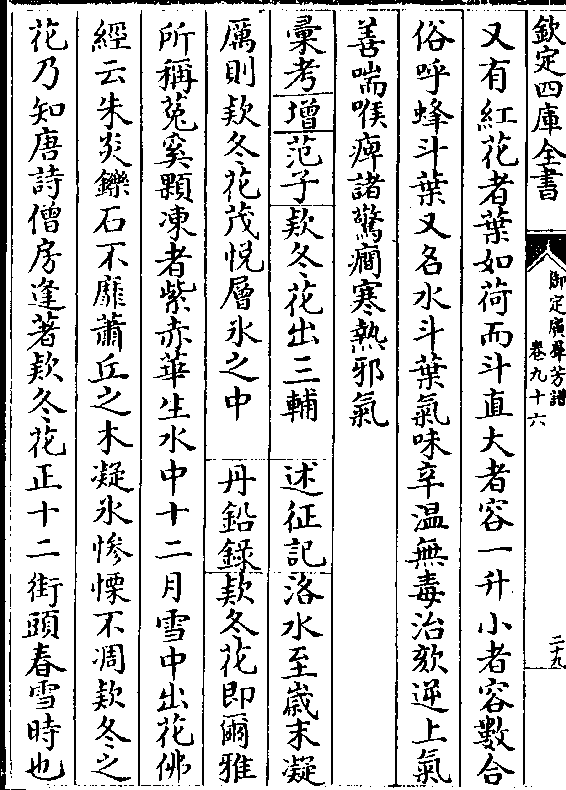 欽定四庫全書
御定廣羣芳譜
卷九十六
二十九
又有紅花者葉如荷而斗直大者容一升小者容數合
俗呼蜂斗葉又名水斗葉氣味辛溫無毒治欬逆上氣
善喘喉痺諸驚癎寒熱邪氣
彙考增范子欵冬花出三輔 述征記洛水至歲末凝
厲則欵冬花茂悅層氷之中 丹鉛錄欵冬花即爾雅
所稱菟奚顆凍者紫赤華生水中十二月雪中出花佛
經云朱炎鑠石不靡蕭丘之木凝氷慘慄不凋欵冬之
花乃知唐詩僧房逢著欵冬花正十二街頭春雪時也